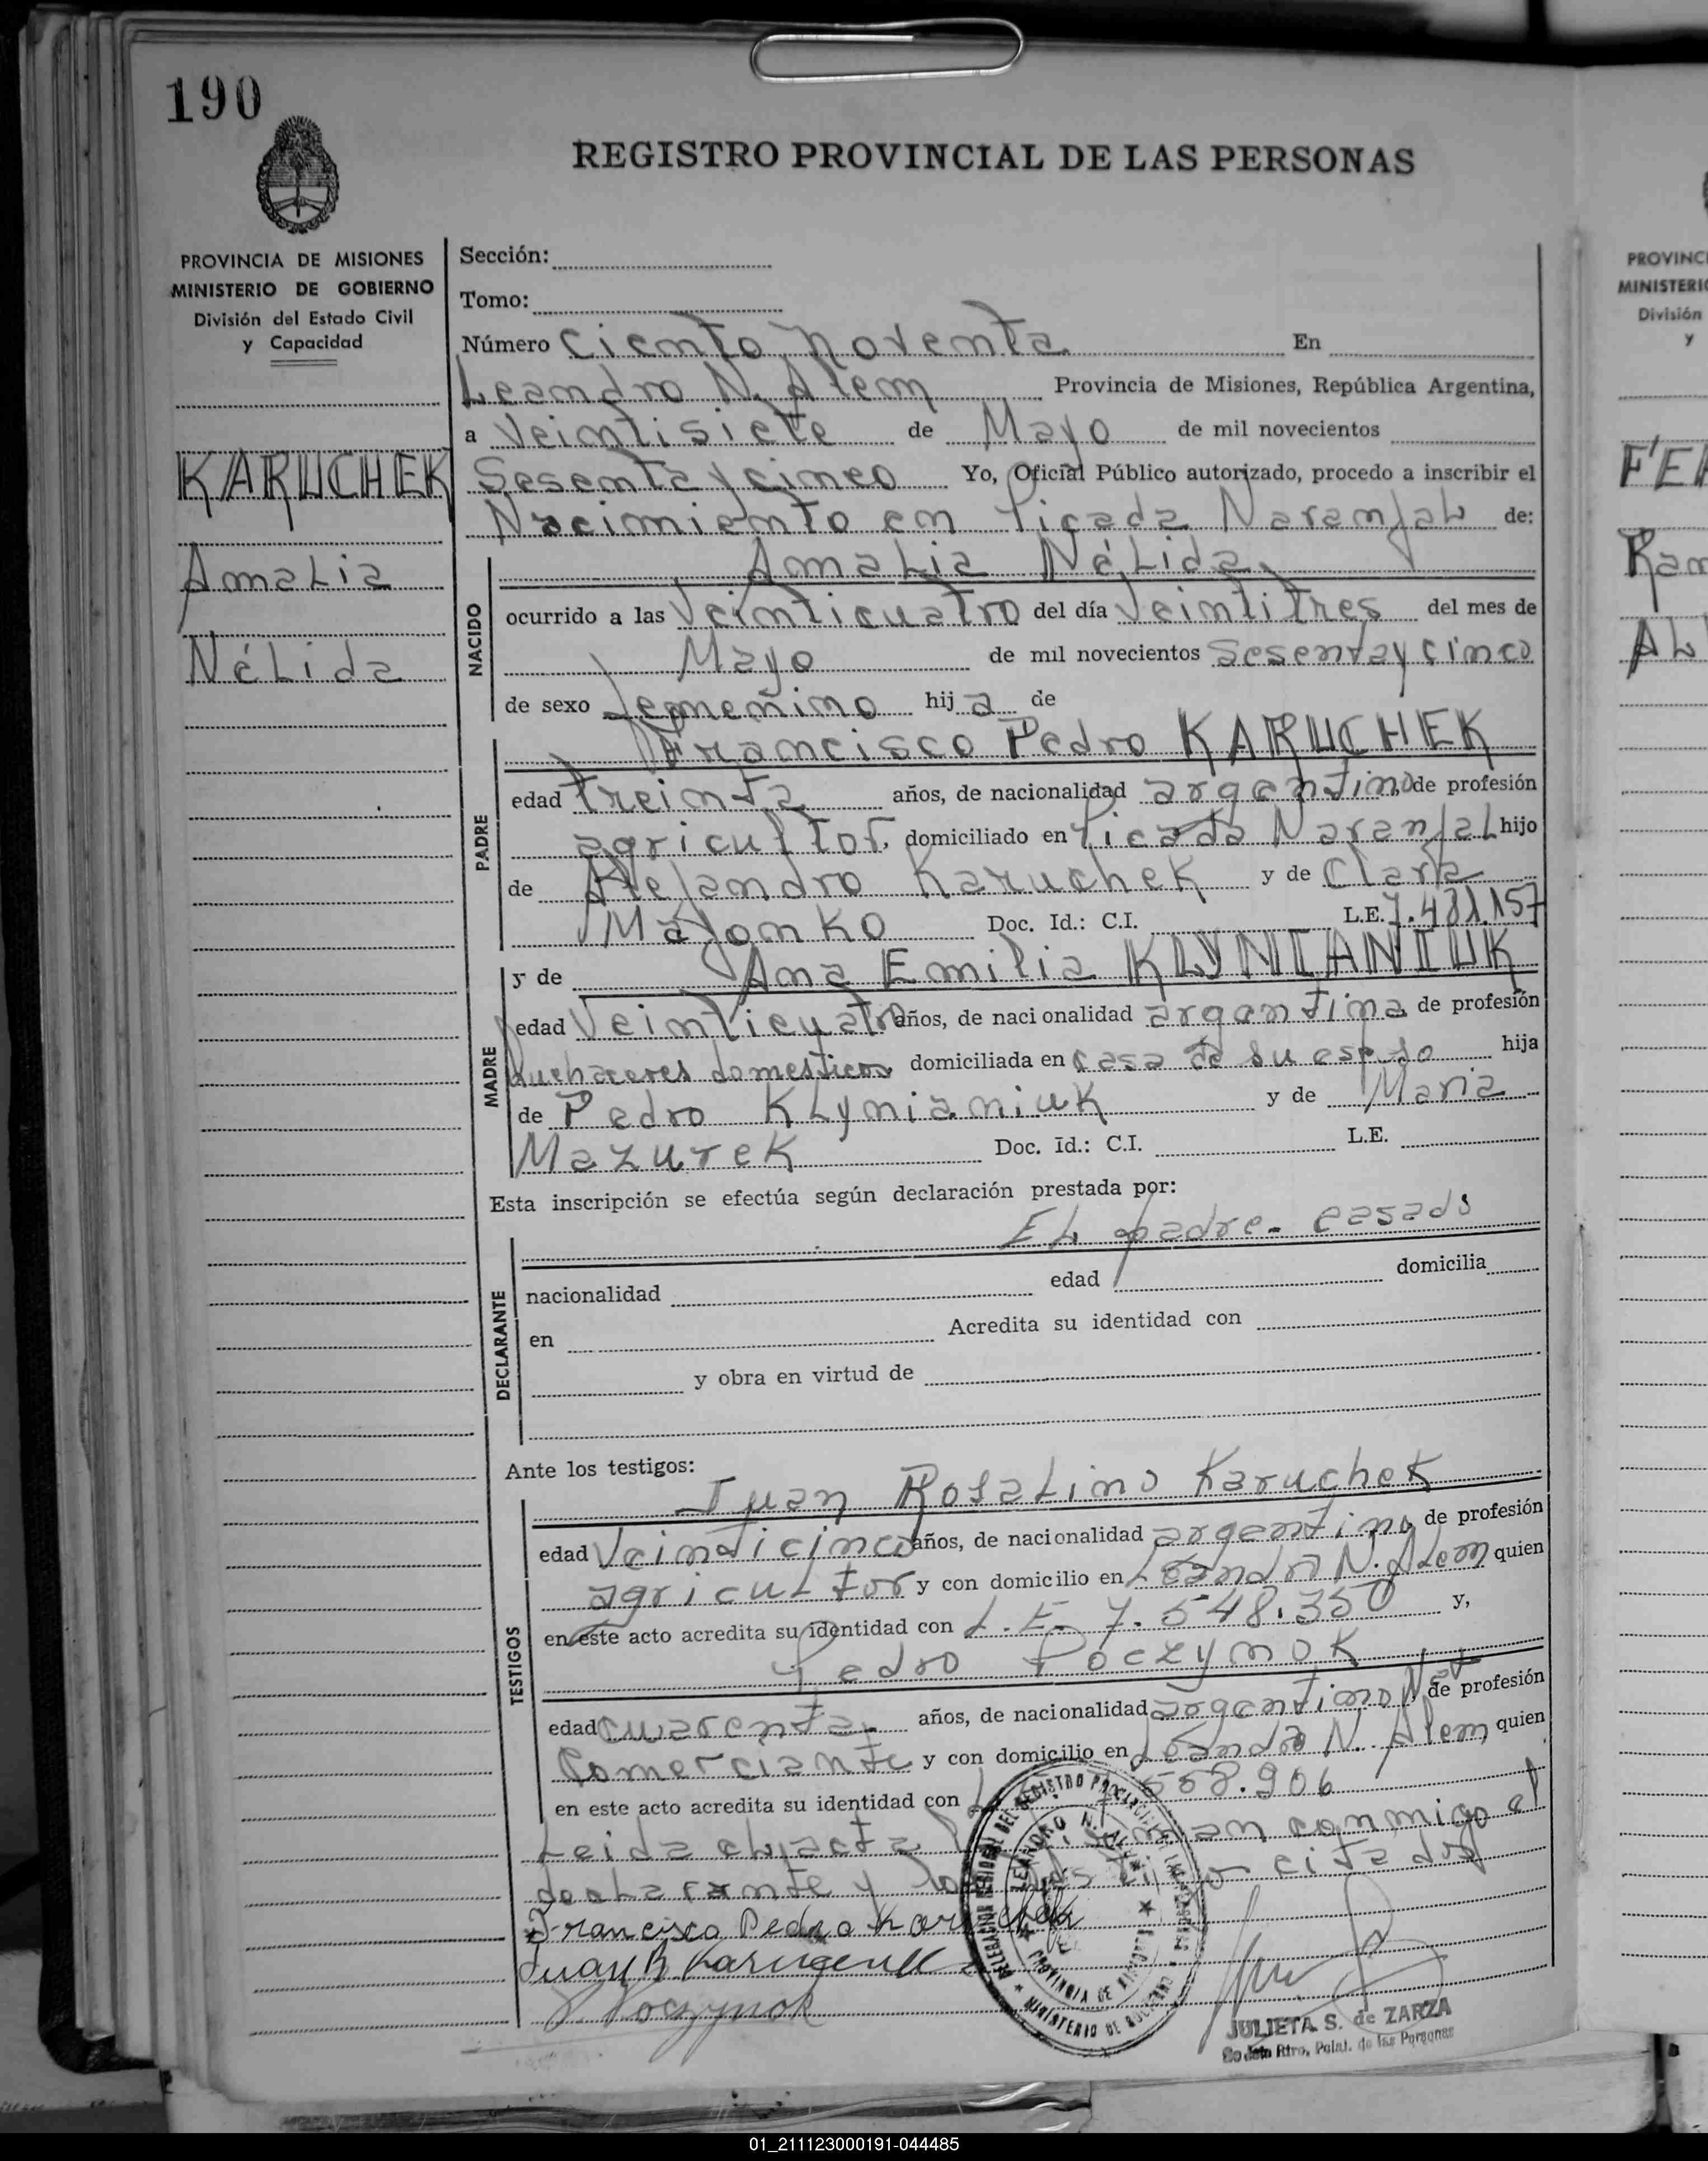 190
REGISTRO PROVINCIAL DE LAS PERSONAS
PROVINCIA DE MISIONES
MINISTERIO DE GOBIERNO
División del Estado Civil
y Capacidad
KARUCHEK
Amalia
Nélida
Sección:
Tomo:
Número Ciento noventa En
Leandro N. Alem Provincia de Misiones, República Argentina,
a Veintisiete de Mayo de mil novecientos
Sesenta y cinco Yo, Oficial Público autorizado, procedo a inscribir el
Nacimiento en Picada Naranjal de:
NACIDO
Amalia Nélida
ocurrido a las Veinticuatro del día Veintitres del mes de
Mayo de mil novecientos Sesenta y cinco
de sexo femenino hija de
PADRE
Francisco Pedro KARUCHEK
edad treinta años, de nacionalidad argentino de profesión
agricultor, domiciliado en Picada Naranjal hijo
de Alejandro Karuchek y de Clara
Majonko Doc. Id.: C.I. L.E. 7.481.157
MADRE
y de Ana Emilia KLYNIANIUK
edad Veinticuatro años, de nacionalidad argentina de profesión
quehaceres domesticos domiciliada en casa de su esposo hija
de Pedro Klynianiuk y de Maria
Mazurek Doc. Id.: C.I. L.E.
Esta inscripción se efectúa según declaración prestada por:
DECLARANTE
El padre - casado
nacionalidad edad domicilia
en Acredita su identidad con
y obra en virtud de
Ante los testigos:
TESTIGOS
Juan Rosalino Karuchek
edad Veinticinco años, de nacionalidad argentino de profesión
agricultor y con domicilio en Leandro N. Alem quien
en este acto acredita su identidad con L.E. 7.548.350 y,
Pedro Poczynok
edad cuarenta años, de nacionalidad argentino Nat de profesión
Comerciante y con domicilio en Leandro N. Alem, quien
en este acto acredita su identidad con 558.906
Leida el acta conmigo el
declarante y los testigos citados
Francisco Pedro Karuchek
Juan R Karuchek
P. Poczynok
LEANDRO N. ALEM
PROVINCIA DE MISIONES
MINISTERIO DE GOBIERNO
JULIETA S. de ZARZA
PROVINCI
MINISTERIO
División
y
FER
Ram
Al
01_211123000191-044485